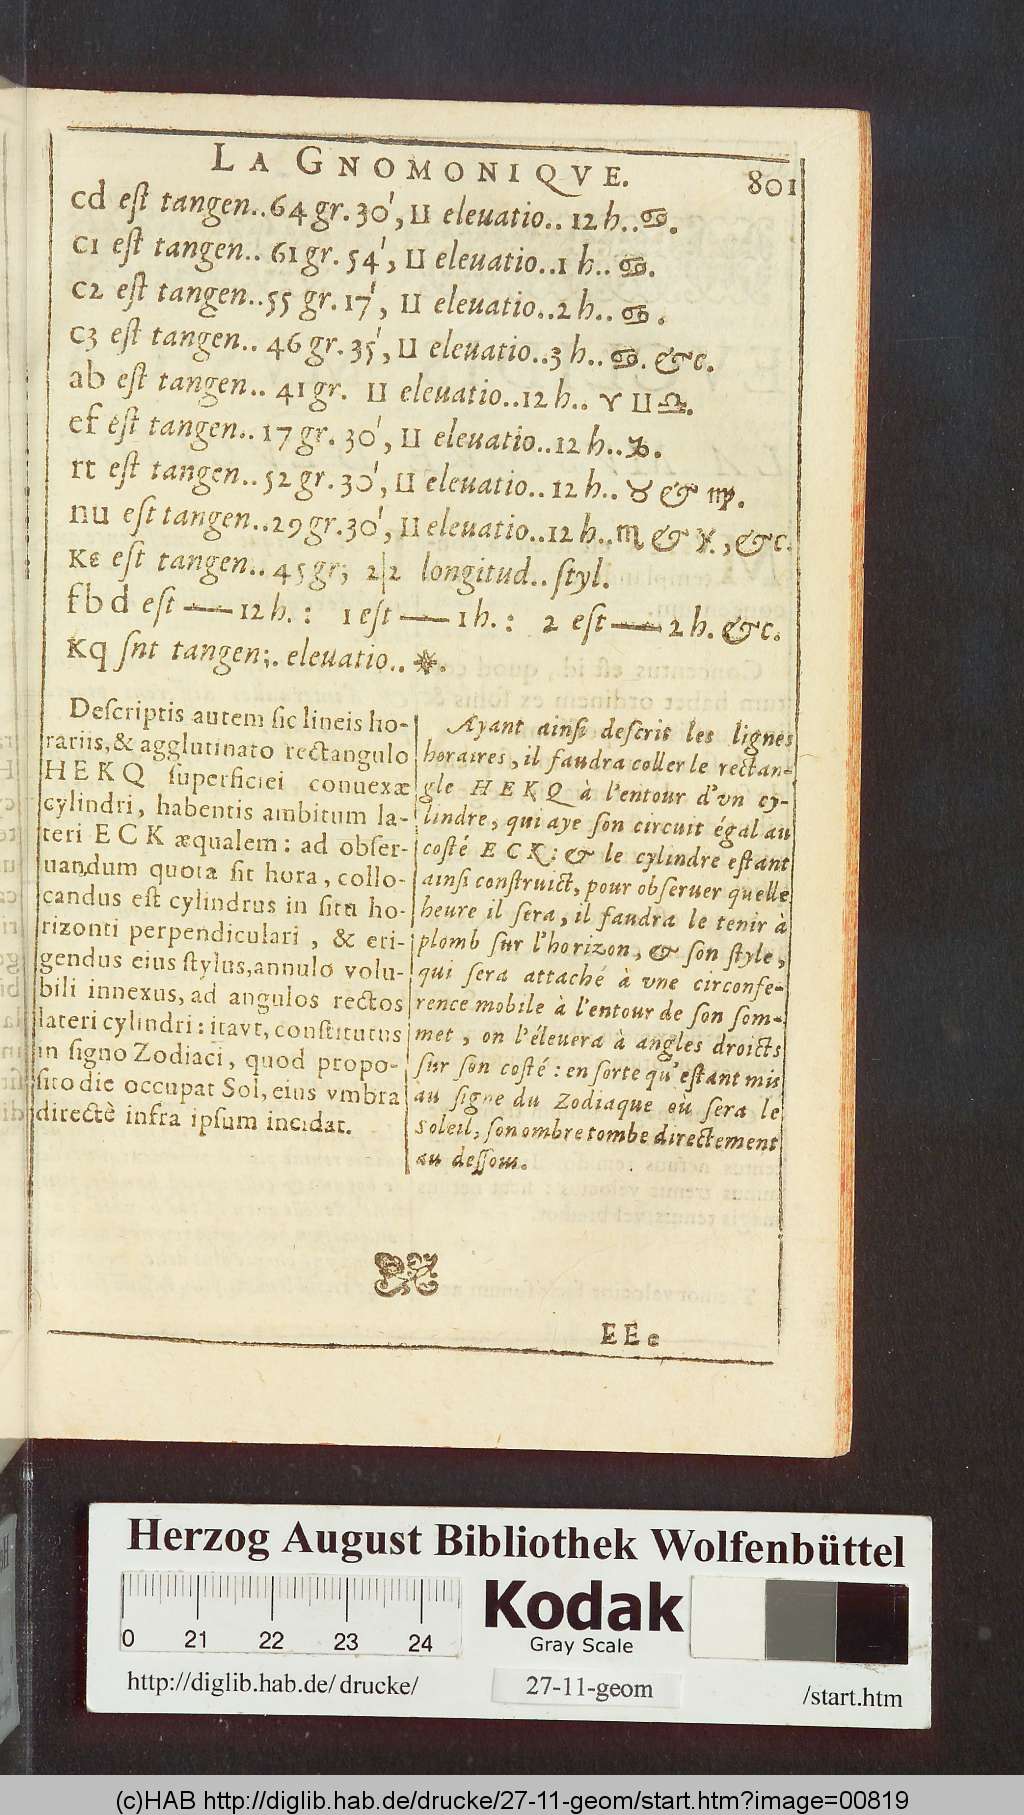 LA GNOMONIQVE.
801
cd est tangen..64 gr. 30', II eleuatio.. 12 h..♋.
c1 est tangen.. 61 gr. 54', II eleuatio..1 h.. ♋.
c2 est tangen..55 gr. 17', II eleuatio..2 h.. ♋.
c3 est tangen.. 46 gr. 35', II eleuatio..3 h.. ♋. &c.
ab est tangen.. 41 gr. II eleuatio..12 h.. ♈ II ♎.
ef est tangen.. 17 gr. 30', II eleuatio..12 h..♑.
rt est tangen.. 52 gr. 30', II eleuatio.. 12 h..♉ & ♍.
nu est tangen..29 gr. 30', II eleuatio..12 h..♏ & ♓, &c.
Kε est tangen.. 45 gr; 2|2 longitud.. styl.
fbd est — 12 h. : 1 est — 1 h. : 2 est — 2 h. &c.
Kq snt tangen;. eleuatio.. ☀.
Descriptis autem sic lineis ho-
rariis, & agglutinato rectangulo
HEKQ superficiei conuexæ
cylindri, habentis ambitum la-
teri ECK æqualem: ad obser-
uandum quota sit hora, collo-
candus est cylindrus in situ ho-
rizonti perpendiculari, & eri-
gendus eius stylus, annulo volu-
bili innexus, ad angulos rectos
lateri cylindri: itavt, constitutus
in signo Zodiaci, quod propo-
sito die occupat Sol, eius vmbra
directè infra ipsum incidat.
Ayant ainsi descrit les lignes
horaires, il faudra coller le rectan-
gle HEKQ à l'entour d'vn cy-
lindre, qui aye son circuit égal au
costé ECK: & le cylindre estant
ainsi construict, pour obseruer quelle
heure il sera, il faudra le tenir à
plomb sur l'horizon, & son style,
qui sera attaché à vne circonfe-
rence mobile à l'entour de son som-
met, on l'éleuera à angles droicts
sur son costé: en sorte qu'estant mis
au signe du Zodiaque où sera le
Soleil, son ombre tombe directement
au dessous.
EEe
Herzog August Bibliothek Wolfenbüttel
0 21 22 23 24
Kodak
Gray Scale
http://diglib.hab.de/drucke/
27-11-geom
/start.htm
(c)HAB http://diglib.hab.de/drucke/27-11-geom/start.htm?image=00819